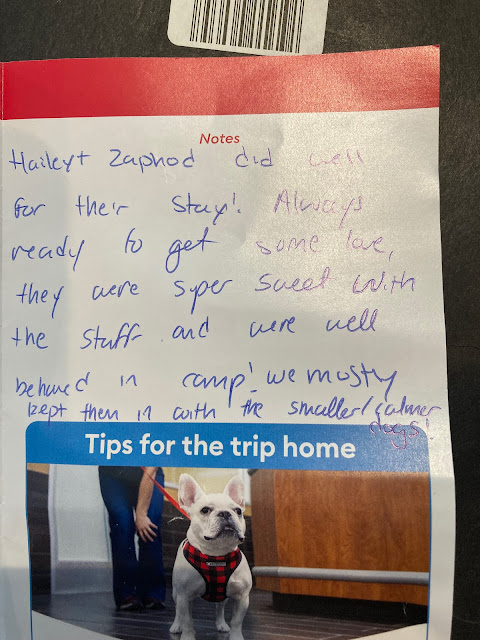 Notes
Hailey+ Zaphod did well
for their stay! Always
ready to get some love,
they were super sweet with
the staff and were well
behaved in camp! we mosty
kept them in with the smaller/calmer
dogs!
Tips for the trip home